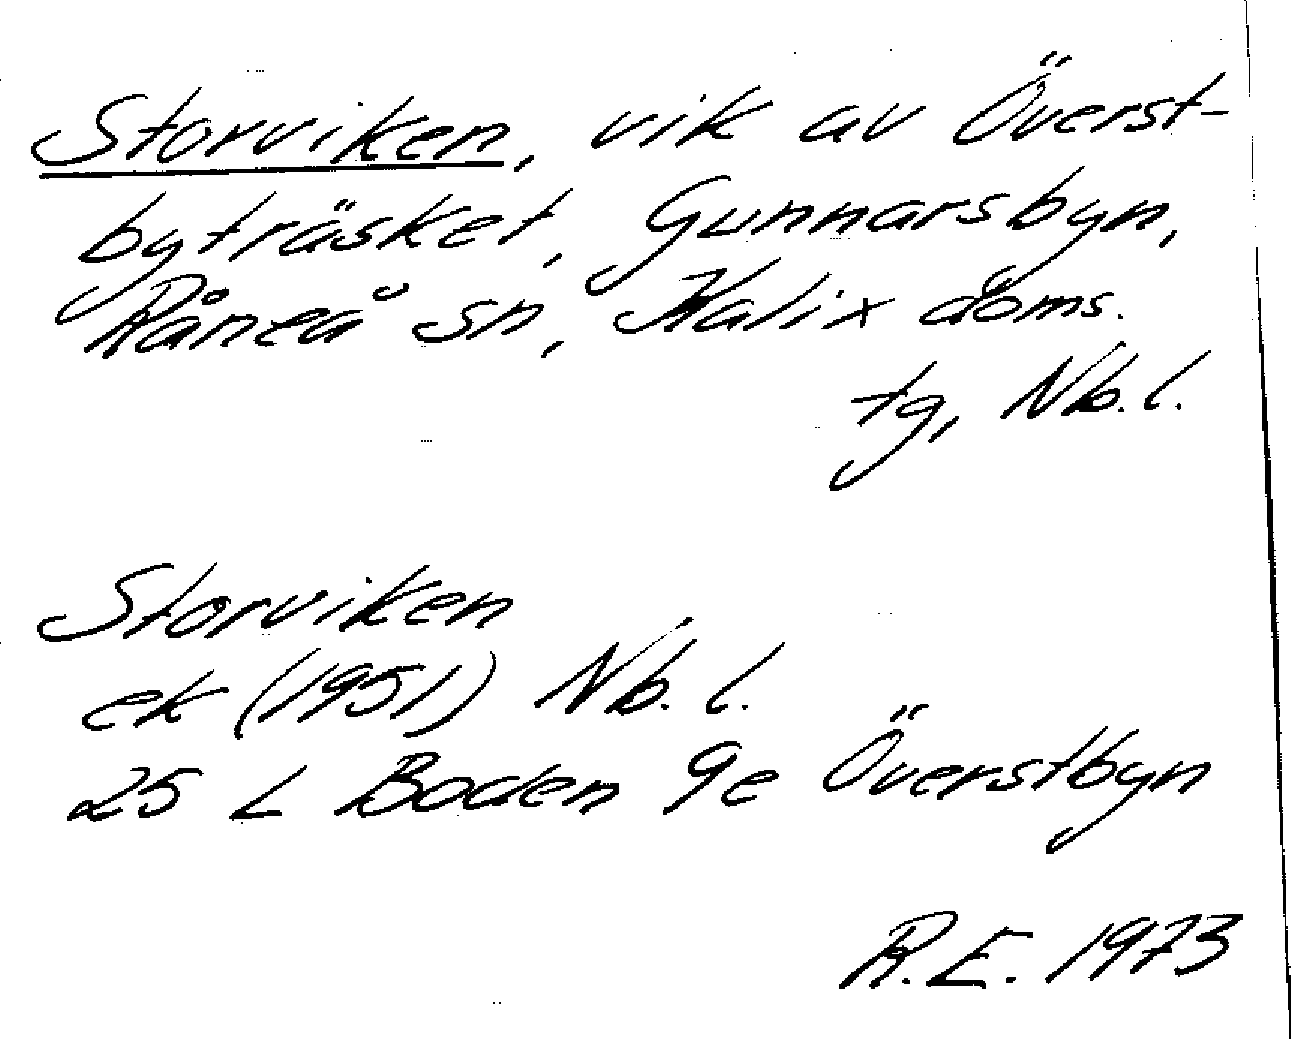 Storviken, vik av Överst-
byträsket, Gunnarsbyn,
Råneå sn, Kalix doms.
tg, Nb.l.
Storviken
ek (1951) Nb. l.
25 L Boden 9e Överstbyn
R.E. 1973